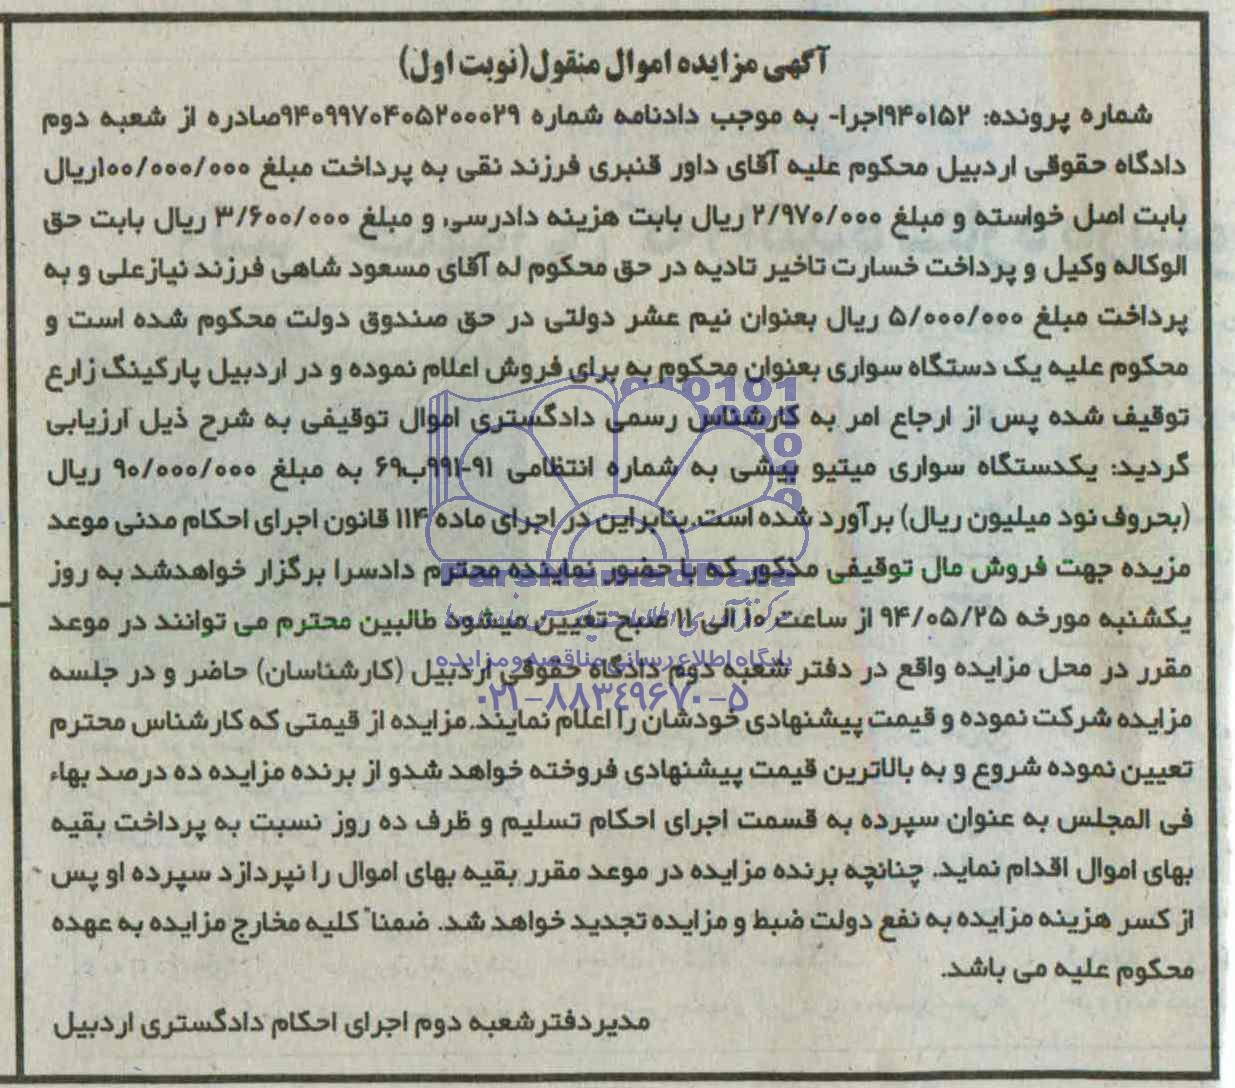 آگهی مزایده اموال منقول(نوبت اول)
شماره پرونده: ۹۴۰۱۵۲اجرا- به موجب دادنامه شماره ۹۴۰۹۹۷۰۴۰۵۲۰۰۰۲۹صادره از شعبه دوم
دادگاه حقوقی اردبیل محکوم علیه آقای داور قنبری فرزند نقی به پرداخت مبلغ ۱۰۰/۰۰۰/۰۰۰ریال
بابت اصل خواسته و مبلغ ۲/۹۷۰/۰۰۰ ریال بابت هزینه دادرسی، و مبلغ ۳/۶۰۰/۰۰۰ ریال بابت حق
الوکاله وکیل و پرداخت خسارت تاخیر تادیه در حق محکوم له آقای مسعود شاهی فرزند نیازعلی و به
پرداخت مبلغ ۵/۰۰۰/۰۰۰ ریال بعنوان نیم عشر دولتی در حق صندوق دولت محکوم شده است و
محکوم علیه یک دستگاه سواری بعنوان محکوم به برای فروش اعلام نموده و در اردبیل پارکینگ زارع
توقیف شده پس از ارجاع امر به کارشناس رسمی دادگستری اموال توقیفی به شرح ذیل ارزیابی
گردید: یکدستگاه سواری میتیو بیشی به شماره انتظامی ۹۱-۹۹۱ب۶۹ به مبلغ ۹۰/۰۰۰/۰۰۰ ریال
(بحروف نود میلیون ریال) برآورد شده است.بنابراین در اجرای ماده ۱۱۴ قانون اجرای احکام مدنی موعد
مزیده جهت فروش مال توقیفی مذکور که با حضور نماینده محترم دادسرا برگزار خواهدشد به روز
یکشنبه مورخه ۹۴/۰۵/۲۵ از ساعت ۱۰ الی ۱۱ صبح تعیین میشود طالبین محترم می توانند در موعد
مقرر در محل مزایده واقع در دفتر شعبه دوم دادگاه حقوقی اردبیل (کارشناسان) حاضر و در جلسه
مزایده شرکت نموده و قیمت پیشنهادی خودشان را اعلام نمایند.مزایده از قیمتی که کارشناس محترم
تعیین نموده شروع و به بالاترین قیمت پیشنهادی فروخته خواهد شدو از برنده مزایده ده درصد بهاء
فی المجلس به عنوان سپرده به قسمت اجرای احکام تسلیم و ظرف ده روز نسبت به پرداخت بقیه
بهای اموال اقدام نماید. چنانچه برنده مزایده در موعد مقرر بقیه بهای اموال را نپردازد سپرده او پس
از کسر هزینه مزایده به نفع دولت ضبط و مزایده تجدید خواهد شد. ضمنا" کلیه مخارج مزایده به عهده
محکوم علیه می باشد.
مدیردفترشعبه دوم اجرای احکام دادگستری اردبیل
ParsNamadData
پایگاه اطلاع رسانی مناقصه و مزایده
۰۲۱-۸۸۳۴۹۶۷۰-۵